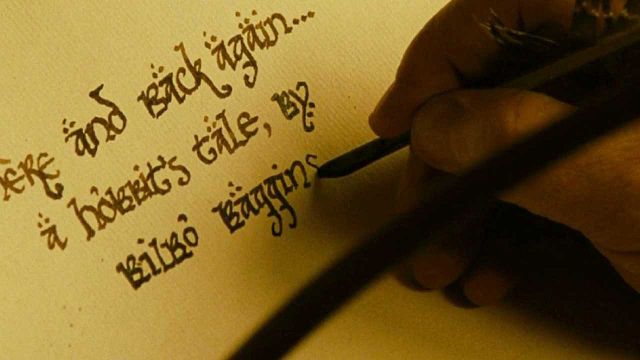 here and Back again...
a hobbit's tale, By
Bilbo Baggins